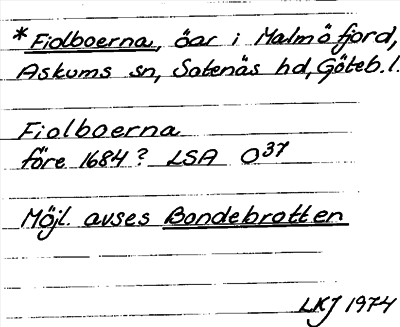 *Fiolboerna, öar i Malmöfjord,
Askums sn, Sotenäs hd, Göteb. l.
Fiolboerna
före 1684? LSA O37
Möjl. avses Bondebrotten
LKJ 1974